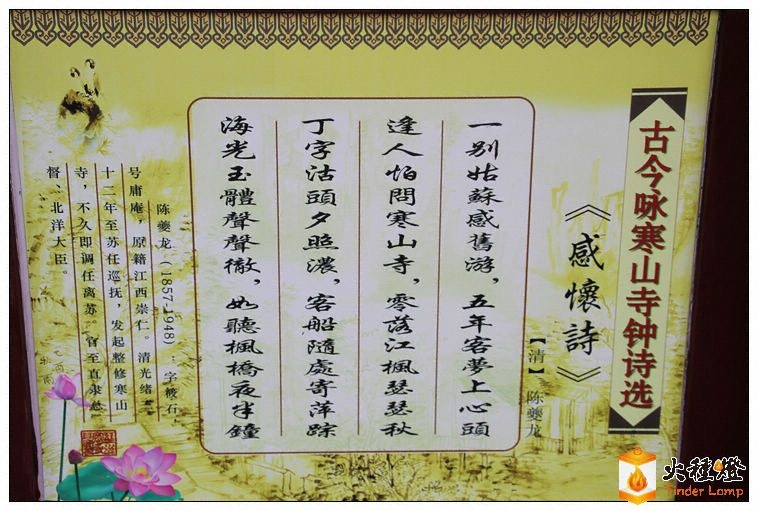 古今咏寒山寺钟诗选
《感懷詩》
【清】 陈夔龙
一别姑蘇感舊游，五年客夢上心頭
逢人怕問寒山寺，零落江楓瑟瑟秋
丁字沽頭夕照濃，客船隨處寄萍踪
海光玉體聲聲徹，如聽楓橋夜半鐘
陈夔龙（1857-1948），字筱石，
号庸庵，原籍江西崇仁。清光绪三
十二年至苏任巡抚，发起整修寒山
寺，不久即调任离苏。官至直隶总
督、北洋大臣。
火種燈
Tinder Lamp